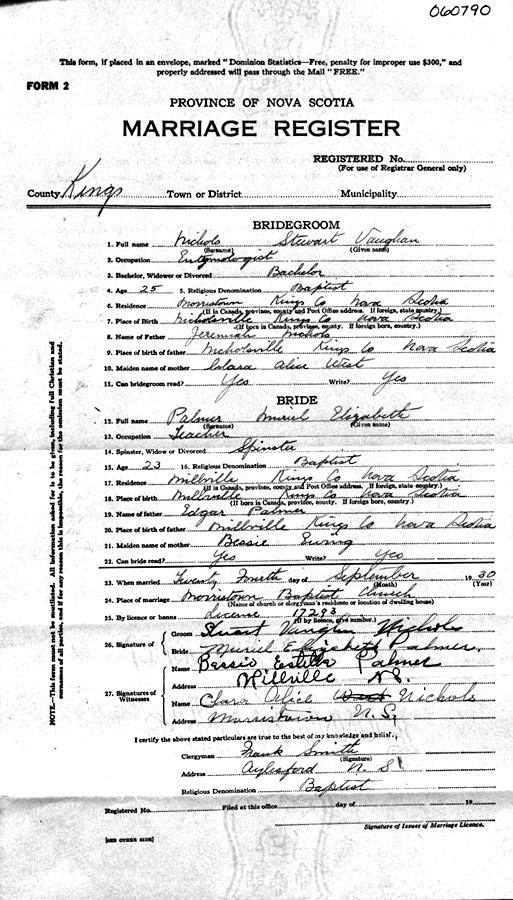 060790
This form, if placed in an envelope, marked "Dominion Statistics—Free, penalty for improper use $300," and
properly addressed will pass through the Mail "FREE."
FORM 2
PROVINCE OF NOVA SCOTIA
MARRIAGE REGISTER
REGISTERED No.
(For use of Registrar General only)
County Kings Town or District Municipality
BRIDEGROOM
1. Full name Nichols Stewart Vaughan
(Surname) (Given name)
2. Occupation Entymologist
3. Bachelor, Widower or Divorced Bachelor
4. Age 25 5. Religious Denomination Baptist
6. Residence Morristown Kings Co Nova Scotia
(If in Canada, province, county and Post Office address. If foreign, state country.)
7. Place of Birth Nicholsville Kings Co Nova Scotia
(If born in Canada, province, county. If foreign born, country.)
8. Name of Father Jeremiah Nichols
9. Place of birth of father Nicholsville Kings Co Nova Scotia
10. Maiden name of mother Clara Alice West
11. Can bridegroom read? Yes Write? Yes
BRIDE
12. Full name Palmer Muriel Elizabeth
(Surname) (Given name)
13. Occupation Teacher
14. Spinster, Widow or Divorced Spinster
15. Age 23 16. Religious Denomination Baptist
17. Residence Millville Kings Co Nova Scotia
(If in Canada, province, county and Post Office address. If foreign, state country.)
18. Place of birth Millville Kings Co Nova Scotia
(If born in Canada, province, county. If foreign born, country.)
19. Name of father Edgar Palmer
20. Place of birth of father Millville Kings Co Nova Scotia
21. Maiden name of mother Bessie Ewing
22. Can bride read? Yes Write? Yes
23. When married Twenty Fourth day of September 1930
(Month) (Year)
24. Place of marriage Morristown Baptist Church
(Name of church or clergyman's residence or location of dwelling house)
25. By licence or banns License 17293
(If by licence, give number.)
26. Signature of Groom Stuart Vaughan Nichols
Bride Muriel Elizabeth Palmer.
27. Signatures of Witnesses
Name Bessie Estella Palmer
Address Millville N.S.
Name Clara Alice West Nichols
Address Morristown N.S.
I certify the above stated particulars are true to the best of my knowledge and belief.
Clergyman Frank Smith
(Signature)
Address Aylesford N.S.
Religious Denomination Baptist
Registered No. Filed at this office day of 19
Signature of Issuer of Marriage Licence.
[SEE OTHER SIDE]
NOTE.—This form must not be used. All information asked for is to be given, including full Christian and
surnames of all parties, and if for any reason this is impossible, the reason for the omission must be stated.